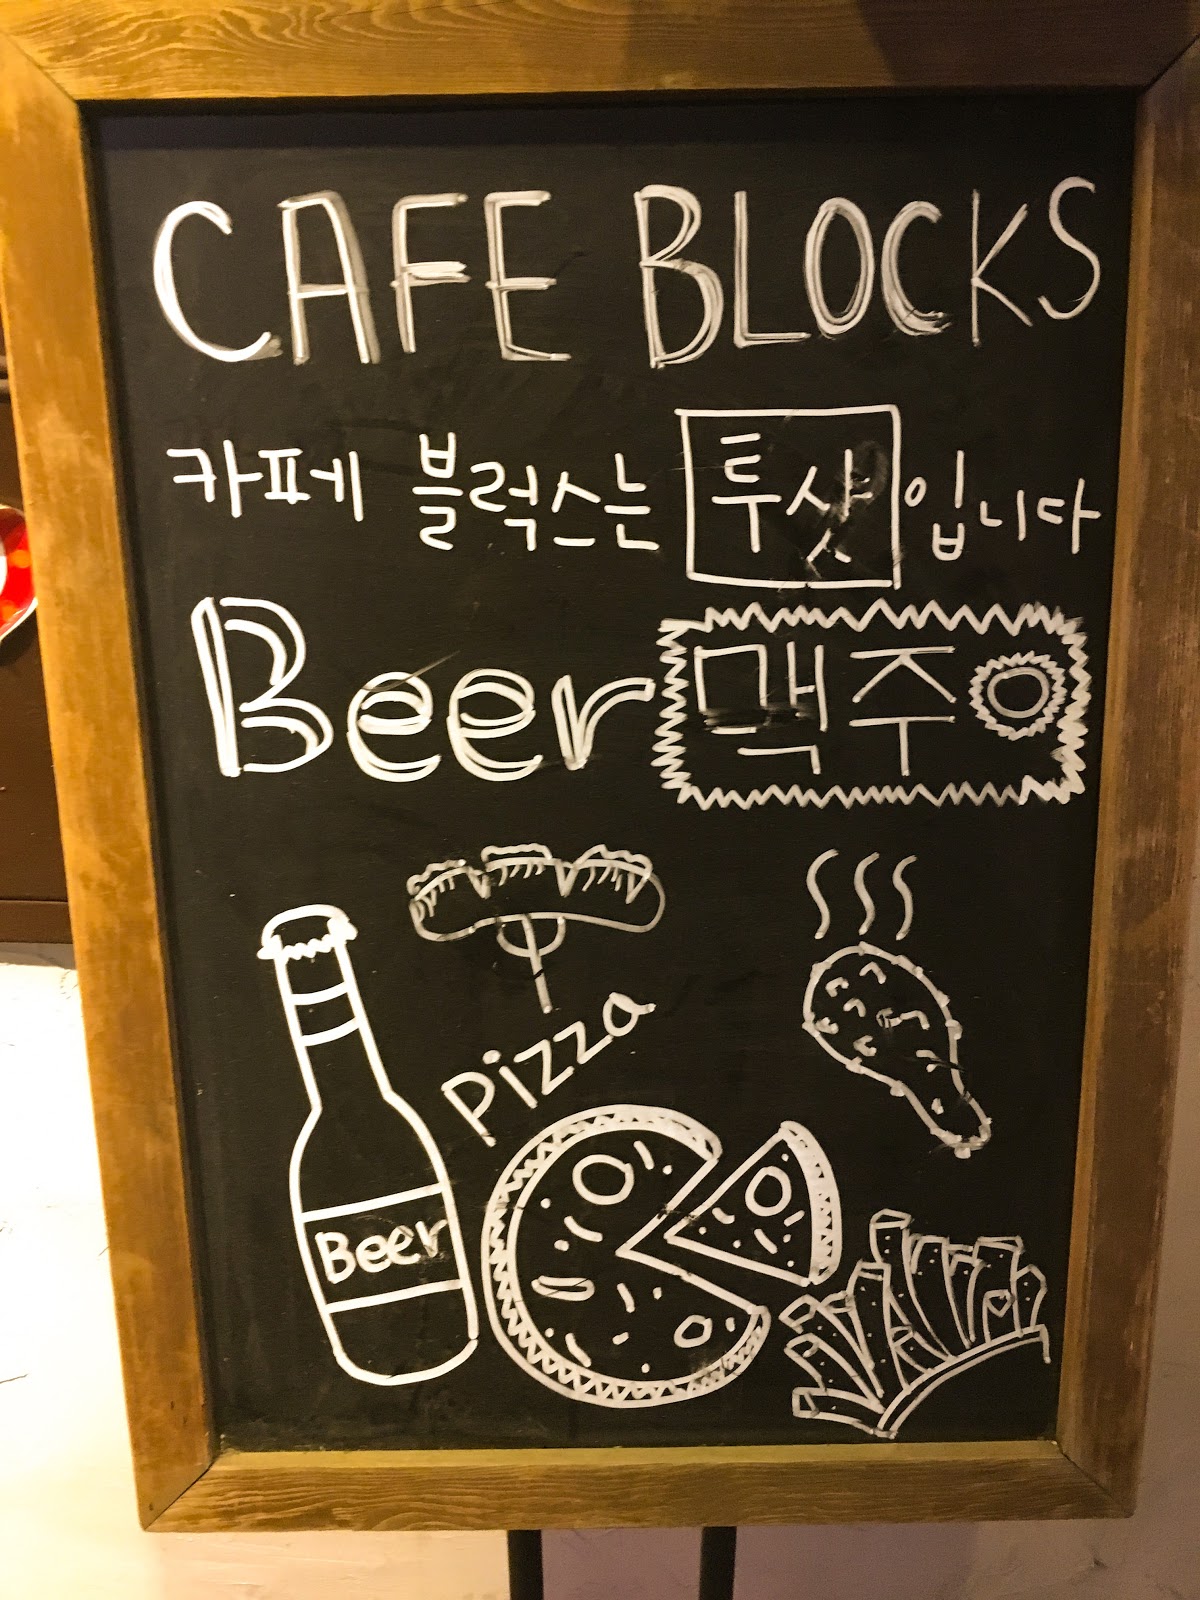 CAFE BLOCKS
카페 블럭스는 투샷입니다
Beer 맥주
Pizza
Beer